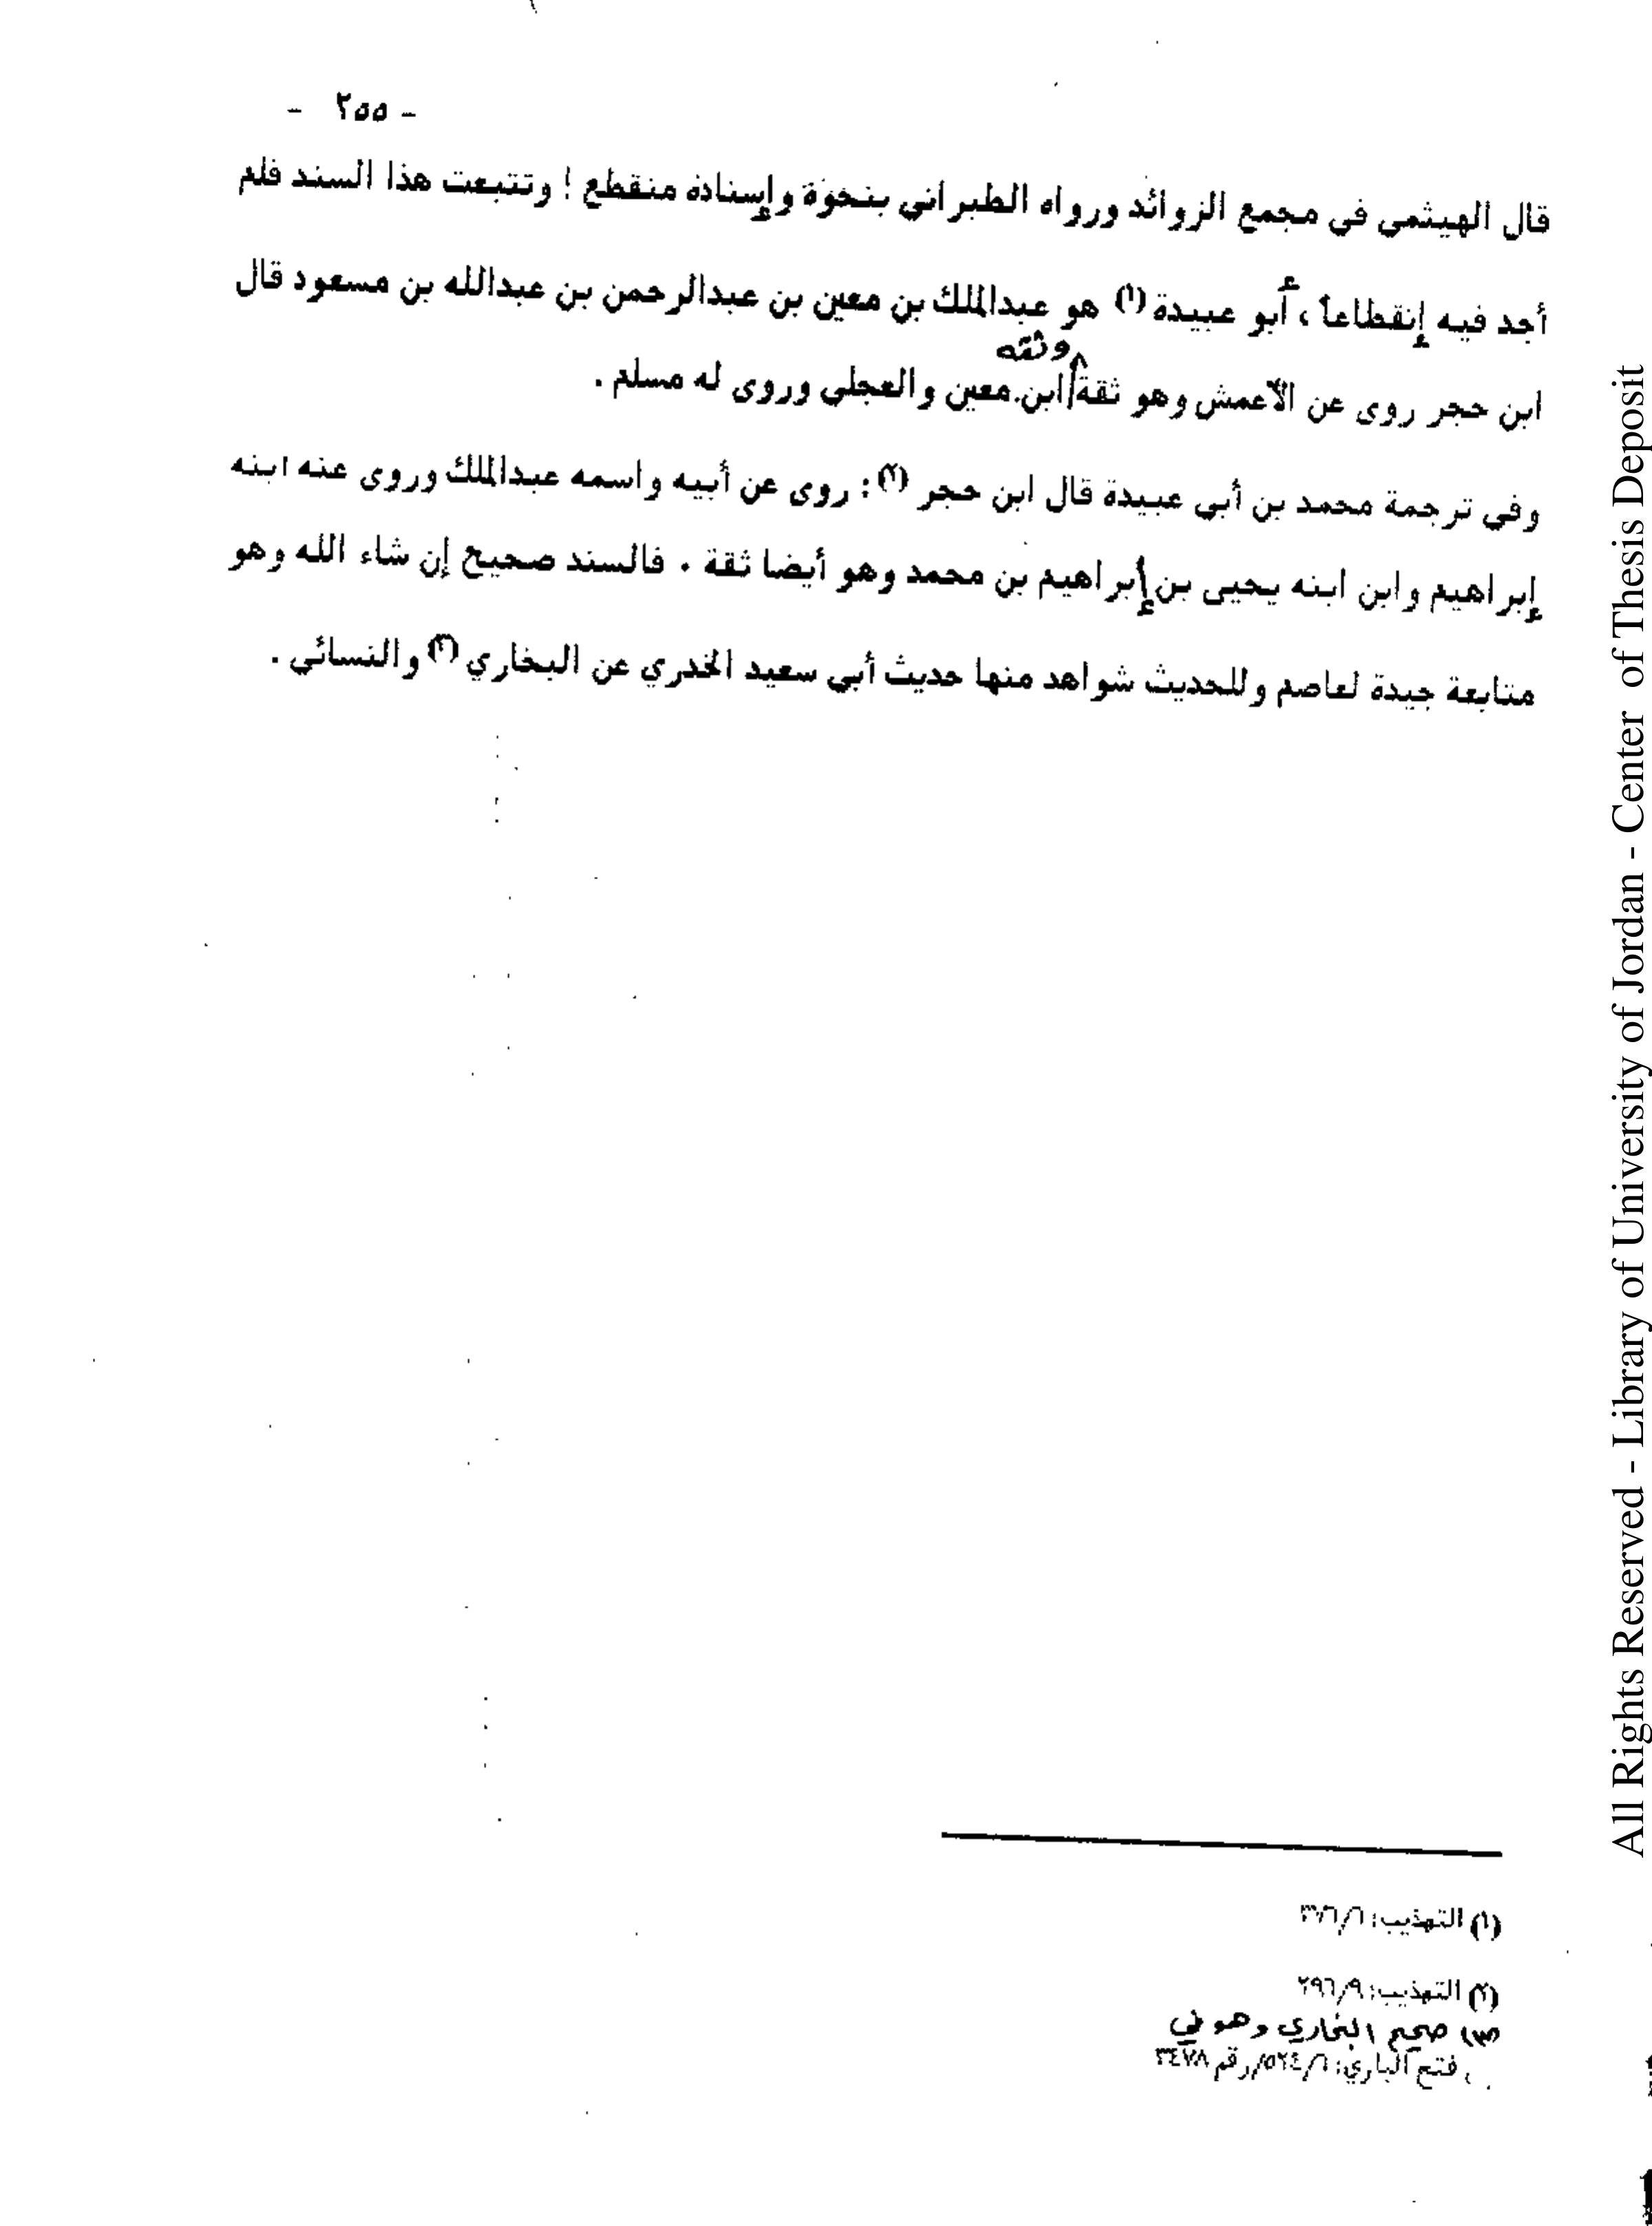 - ٢٥٥ -
قال الهيثمي في مجمع الزوائد ورواه الطبراني بنحوة وإسناده منقطع ! وتتبعت هذا السند فلم
أجد فيه إنقطاعاً ، أبو عبيدة (١) هو عبدالملك بن معين بن عبدالرحمن بن عبدالله بن مسعود قال
وثقه
ابن حجر روى عن الأعمش وهو ثقة ابن معين والعجلي وروى له مسلم .
وفي ترجمة محمد بن أبي عبيدة قال ابن حجر (٢) : روى عن أبيه واسمه عبدالملك وروى عنه ابنه
إبراهيم وابن ابنه يحيى بن إبراهيم بن محمد وهو أيضا ثقة . فالسند صحيح إن شاء الله وهو
متابعة جيدة لعاصم وللحديث شواهد منها حديث أبي سعيد الخدري عن البخاري (٣) والنسائي .
(١) التهذيب: ٣٧٦/٦
(٢) التهذيب: ٢٩٦/٩
(٣) صحيح البخاري وهو في
فتح الباري: ٥٢٤/٦/رقم ٣٤٧٨
All Rights Reserved - Library of University of Jordan - Center of Thesis Deposit